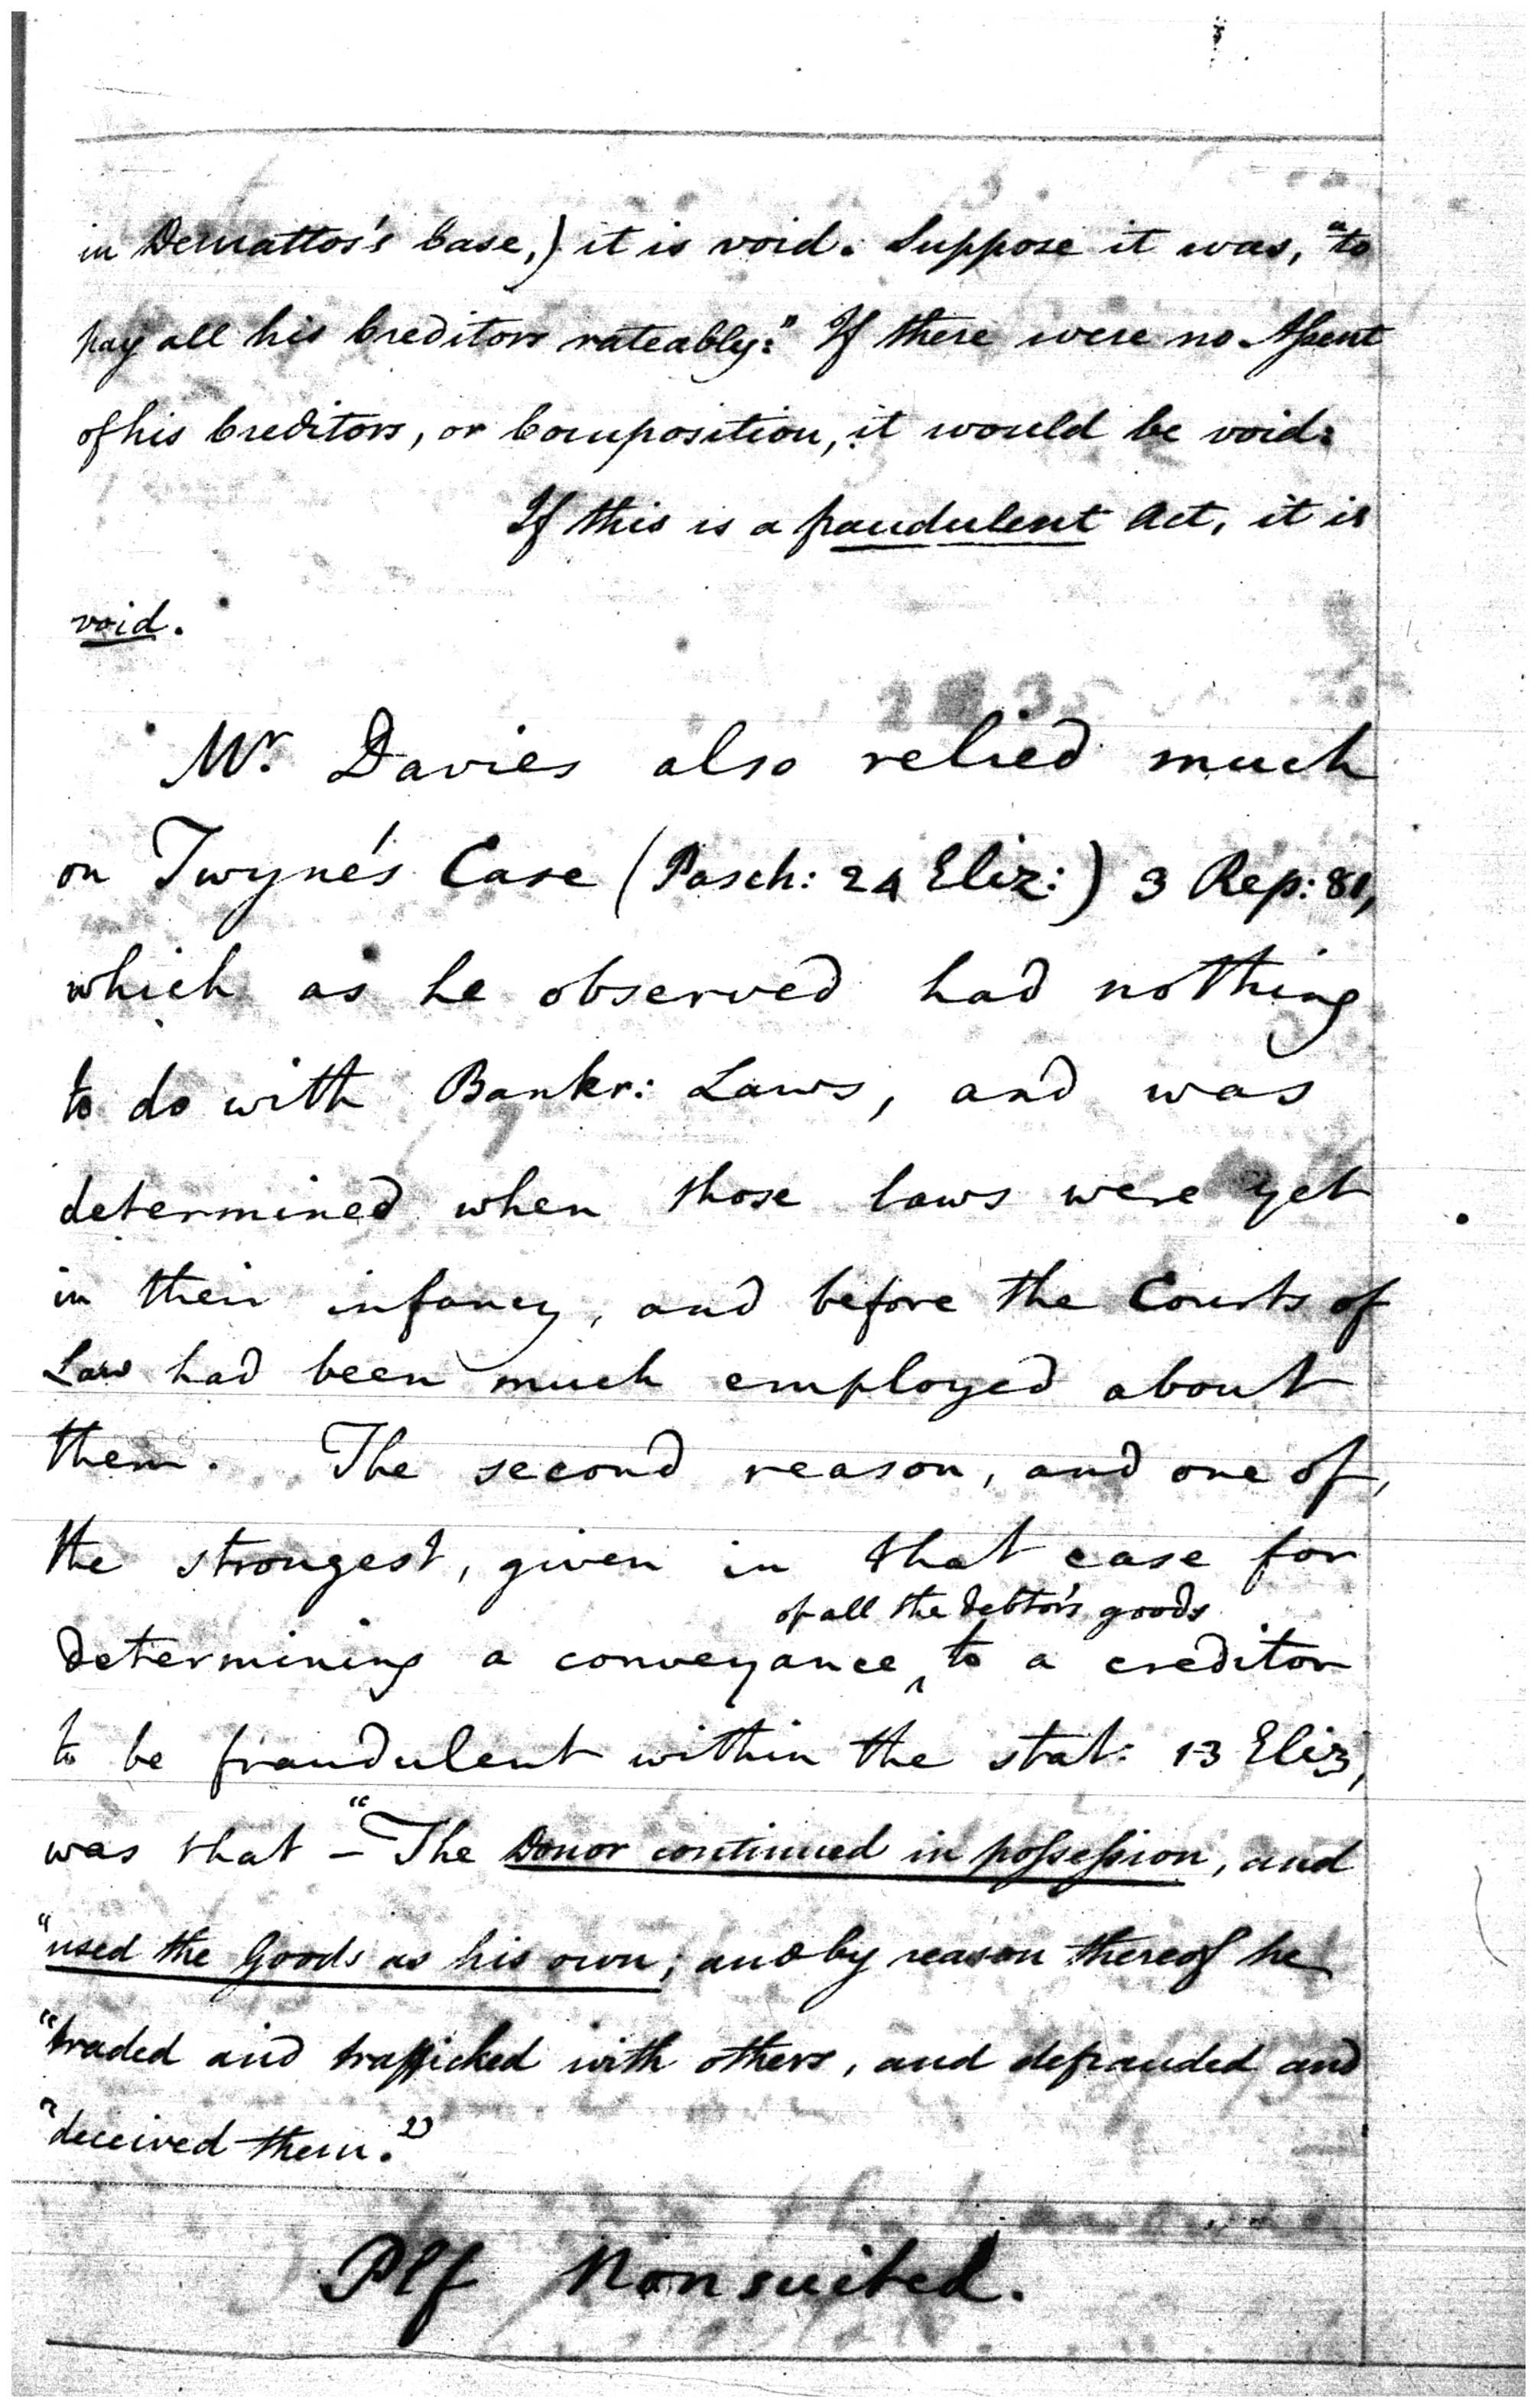 in Demattos's Case,) it is void. Suppose it was, "to
pay all his Creditors rateably:" If there were no Aſsent
of his Creditors, or Composition, it would be void.
If this is a fraudulent Act, it is
void.
Mr. Davies also relied much
on Twyne's Case (Pasch: 24 Eliz:) 3 Rep: 81,
which as he observed had nothing
to do with Bankr: Laws, and was
determined when those laws were yet
in their infancy, and before the Courts of
Law had been much employed about
them. The second reason, and one of
the strongest, given in that case for
of all the debtor's goods
determining a conveyance ‸ to a creditor
to be fraudulent within the stat: 13 Eliz,
was that – "The Donor continued in poſseſsion, and
"used the Goods as his own; and by reason thereof he
"traded and trafficked with others, and defrauded and
"deceived them."
Plf Nonsuited.